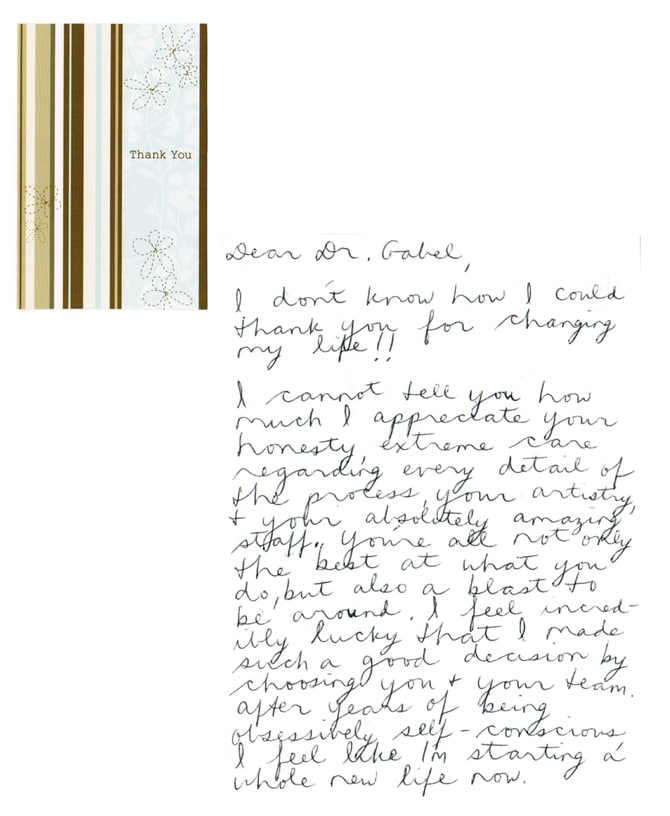 Thank You
Dear Dr. Gabel,
I don't know how I could
thank you for changing
my life!!
I cannot tell you how
much I appreciate your
honesty, extreme care
regarding every detail of
the process, your artistry,
+ your absolutely amazing
staff. You're all not only
the best at what you
do, but also a blast to
be around. I feel incred-
ibly lucky that I made
such a good decision by
choosing you + your team.
After years of being
obsessively self-conscious
I feel like I'm starting a
whole new life now.